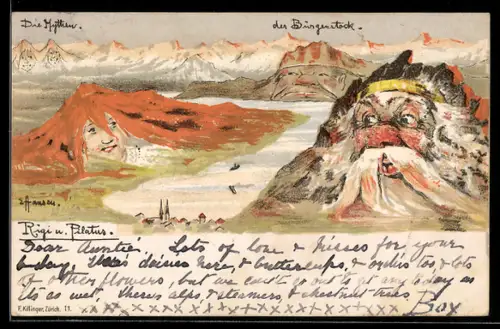 Die Mythen.
der Bürgenstock.
Hansen.
Rigi u. Pilatus.
Dear Auntie. Lots of love & kisses for your
b-day. Theres daisies here, & buttercups, & orchis too & lots
of other flowers, but we can't go out to get any to day as
its so wet. theres alps & steamers & chestnut trees
x x x x x x x x x x x x Boy
E. Killinger, Zürich. 11.